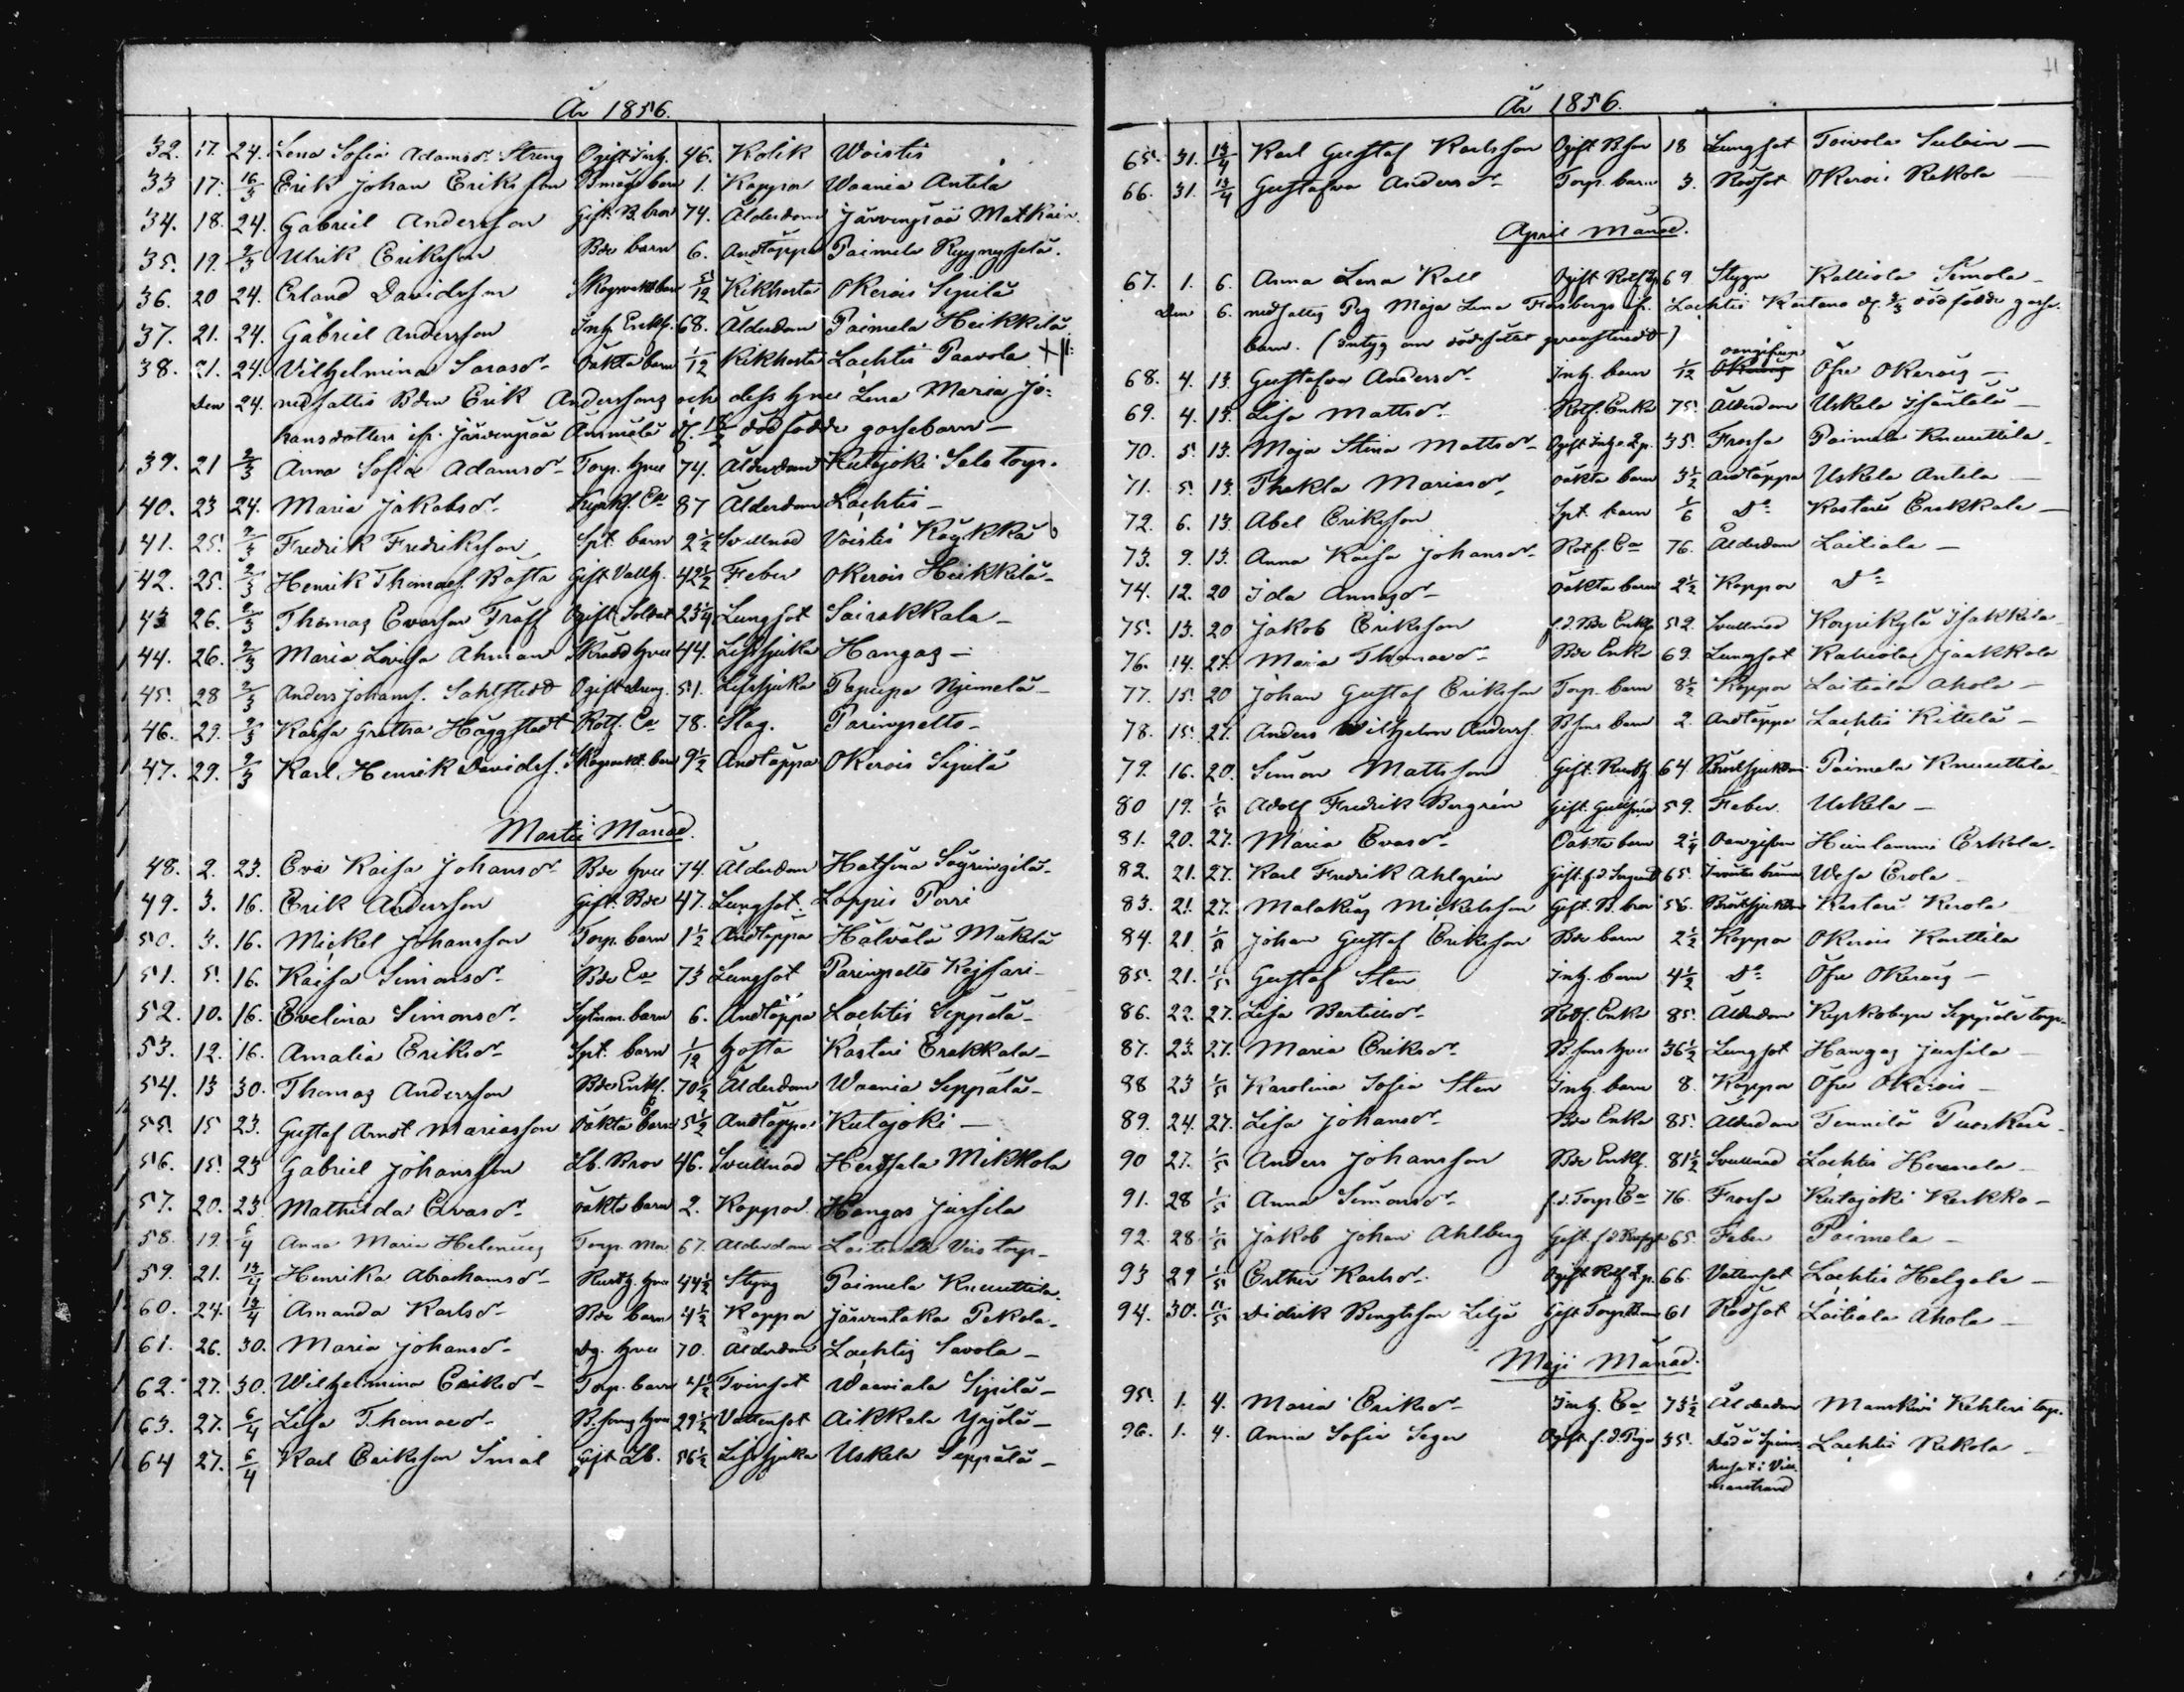 År 1856.
32. 17. 24. Lena Sofia Adamsdr. Streng Ogift Inh. 46. Kolik Woistis
33 17. 16/3 Erik Johan Eriksson barn 1. Koppor Waania Antila
34. 18. 24. Gabriel Andersson Gift. B. bror 74. Ålderdom Järvenpää Matkain.
35. 19. 2/3 Ulrik Eriksson Bde barn 6. Andtäppa Paimela
36. 20 24. Erland Davidsson barn 5/12 Kikhosta Okerois Sipilä
37. 21. 24. Gabriel Andersson Inh. Enkl. 68. Ålderdom Paimela Heikkilä
38. 21. 24. Vilhelmina Sarasdr. Oäkta barn 1/12 Kikhosta Lachtis Paavola
den 24. nedsattes Bden Erik Anderssons och dess hru Lena Maria Jo-
hansdotters ifr. Järvenpää dödfödde gossebarn —
39. 21 2/3 Anna Sofia Adamsdr. Torp. hru 74. Ålderdom Kutajoki Salo torp.
40. 23 24. Maria Jakobsdr. Ea 87 Ålderdom Lachtis —
41. 25. 2/3 Fredrik Fredriksson Spt. barn 2½ Svullnad Voistis Köykkä
42. 25. 2/3 Henrik Thomass. Rosta Gift Vallh. 42½ Feber Okerois Heikkilä
43 26. 2/3 Thomas Evasson Träff Ogift Soldat 23¼ Lungsot Sairakkala —
44. 26. 2/3 Maria Lovisa Ahman hru 44. Lifssjuka Hangas —
45. 28 2/3 Anders Johanss. Sahlstedt Ogift dreng. 51. Lifssjuka Pupupa Njemelä —
46. 29. 2/3 Kaisa Gretha Häggstedt Rotf. Ea 78. Slag. Paringpelto —
47. 29. 2/3 Karl Henrik Davidss. barn 9½ Andtäppa Okerois Sipilä
Martii Månad.
48. 2. 23. Eva Kaisa Johansdr. Bde hru 74. Ålderdom Hatsina Söyringilä —
49. 3. 16. Erik Andersson Gift. Bde 47. Lungsot. Loppis Porri
50. 3. 16. Mickel Johansson Torp. barn 1½ Andtäppa Hälvälä Mäkelä
51. 5. 16. Kaisa Simonsdr. Bde Ea 73 Lungsot Paringpelto Kojsari —
52. 10. 16. Evelina Simonsdr. barn 6. Andtäppa Lachtis Seppälä —
53. 12. 16. Amalia Eriksdr. Spt. barn 1/12 Hosta Kastari Erakkala —
54. 13 30. Thomas Andersson Bde Enkl. 70½ Ålderdom Waania Seppälä —
55. 15 23. Gustaf Arndt Mariasson Oäkta barn 5½ Andtäppa Kutajoki —
56. 15. 23 Gabriel Johansson Lb. Bror 46. Svullnad Hersala Mikkola
57. 20. 23. Mathilda Evasdr. oäkta barn 2. Koppor Hangas Jussila
58. 19. 6/4 Anna Maria Helenius Torp. Mo. 67. Ålderdom Laitiala Viro torp —
59. 21. 13/4 Henrika Abrahamsdr. Rusth. hru 44½ Styng Paimela Knuuttila
60. 24. 13/4 Amanda Karlsdr. Bde barn 4½ Koppor Järventaka Pekola —
61. 26. 30. Maria Johansdr. Dg. hru 70. Ålderdom Lachtis Savola —
62. 27. 30. Wilhelmina Eriksdr. Torp. barn Tvinsot Waaviala Sipilä —
63. 27. 6/4 Lisa Thomasdr. B. sons hru 29½ Vattensot Aikkala Yrjölä —
64 27. 6/4 Karl Eriksson Smal Gift Lb. 56½ Lifssjuka Uskela Seppälä —
År 1856.
65. 31. 13/4 Karl Gustaf Karlsson Ogift B. son 18 Lungsot Toivola —
66. 31. 13/4 Gustafva Andersdr. Torp. barn 3. Rödsot Okerois Rekola —
April månad.
67. 1. 6. Anna Lena Roll Ogift 69 Styng Kalliola Simola —
den 6. nedsattes Pig Maja Lena Forsbergs ifr. Lachtis Kartano dödfödde gosse-
barn. (intyg om dödsättet)
68. 4. 13. Gustafva Andersdr. Inh. barn 1/12 oangifven Öfre Okerois —
69. 4. 13. Lisa Mattsdr. Rotf. Enka 75. Ålderdom Uskela Isäntälä —
70. 5. 13. Maja Stina Mattsdr. Ogift Inh. 35. Frossa Paimela Knuuttila —
71. 5. 13. Thekla Mariasdr. oäkta barn 3½ Andtäppa Uskela Antila —
72. 6. 13. Abel Eriksson Spt. barn 1/6 Do. Kastari Erakkala —
73. 9. 13. Anna Kaisa Johansdr. Rotf. Ea 76. Ålderdom Laitiala —
74. 12. 20 Ida Annasdr. Oäkta barn 2½ Koppor Do.
75. 13. 20 Jakob Eriksson f.d. Bde Enkl. 52. Svullnad Korpikylä Isakkila —
76. 14. 27. Maria Thomasdr. Bde Enka 69. Lungsot Kaliola Jaakkola
77. 15. 20 Johan Gustaf Eriksson Torp. barn 8½ Koppor Laitiala Ahola —
78. 15. 27. Anders Wilhelm Anderss. B. sons barn 2. Andtäppa Lachtis Kittelä —
79. 16. 20. Simon Mattsson Gift. Rusth. 64 Bröstsjukdom Paimela Knuuttila —
80 19. 1/5 Adolf Fredrik Bergrén Gift. 59. Feber. Uskela —
81. 20. 27. Maria Evasdr. Oäkta barn 2¼ Oangifven Heinlammi Erkola —
82. 21. 27. Karl Fredrik Ahlgrén Gift. f.d. 65. Wesa Erola —
83. 21. 27. Malakias Mickelsson Gift. B. bror 56. Bröstsjukdom Kastari Kerola
84. 21 1/5 Johan Gustaf Eriksson Bde barn 2½ Koppor Okerois Karttila
85. 21. 1/5 Gustaf Sten Inh. barn 4½ Do. Öfre Okerois —
86. 22. 27. Lisa Bertilsdr. Rotf. Enka 85. Ålderdom Kyrkobyn Seppälä torp.
87. 23. 27. Maria Eriksdr. B. sons hru 36½ Lungsot Hangas Jussila —
88 23 1/5 Karolina Sofia Sten Inh. barn 8. Koppor Öfre Okerois —
89. 24. 27. Lisa Johansdr. Bde Enka 85. Ålderdom Tennilä
90 27. 1/5 Anders Johansson Bde Enkl. 81½ Svullnad Lachtis Hennala —
91. 28 1/5 Anna Simonsdr. f.d. Torp. Ea 76. Frossa Kutajoki Kerkko —
92. 28 1/5 Jakob Johan Ahlberg Gift. f.d. 65. Feber Paimela —
93 29 1/5 Esther Karlsdr. Ogift Rotf. 66. Vattensot Lachtis Helgola —
94. 30. 11/5 Didrik Bengtsson Lilja Gift 61 Rödsot Laitiala Ahola —
Maji Månad.
95. 1. 4. Maria Eriksdr. Inh. Ea 73½ Ålderdom Manskivi torp.
96. 1. 4. Anna Sofia Seger Ogift f.d. Piga 35. död å Spinn- Lachtis Rekola —
huset i Vill-
manstrand